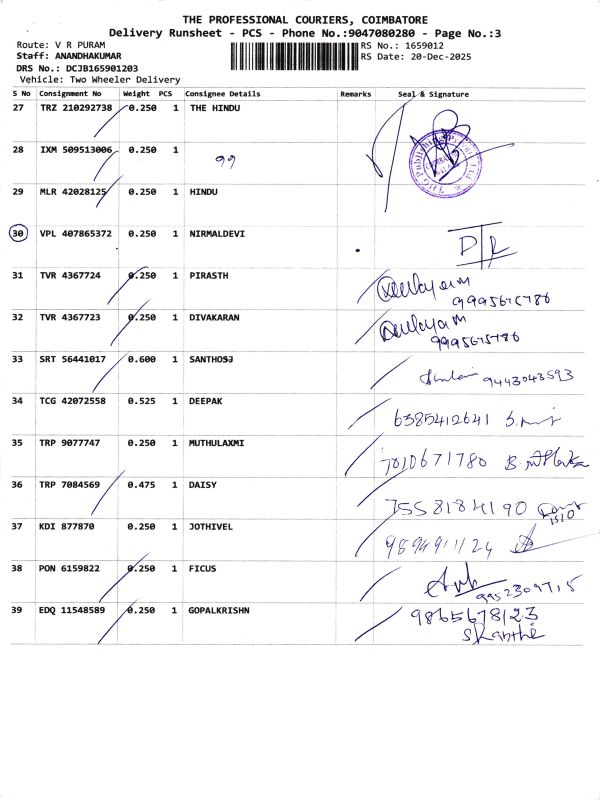 THE PROFESSIONAL COURIERS, COIMBATORE
Delivery Runsheet - PCS - Phone No.:9047080280 - Page No.:3
Route: V R PURAM
Staff: ANANDHAKUMAR
DRS No.: DCJB165901203
Vehicle: Two Wheeler Delivery
RS No.: 1659012
RS Date: 20-Dec-2025
S No Consignment No Weight PCS Consignee Details Remarks Seal & Signature
27 TRZ 210292738 0.250 1 THE HINDU
28 IXM 509513006 0.250 1 99
29 MLR 42028125 0.250 1 HINDU
30 VPL 407865372 0.250 1 NIRMALDEVI
31 TVR 4367724 0.250 1 PIRASTH
32 TVR 4367723 0.250 1 DIVAKARAN
33 SRT 56441017 0.600 1 SANTHOSJ 9443043593
34 TCG 42072558 0.525 1 DEEPAK 6385412641
35 TRP 9077747 0.250 1 MUTHULAXMI 7010671780
36 TRP 7084569 0.475 1 DAISY 7558184190
37 KDI 877870 0.250 1 JOTHIVEL
38 PON 6159822 0.250 1 FICUS
39 EDQ 11548589 0.250 1 GOPALKRISHN 9865678123